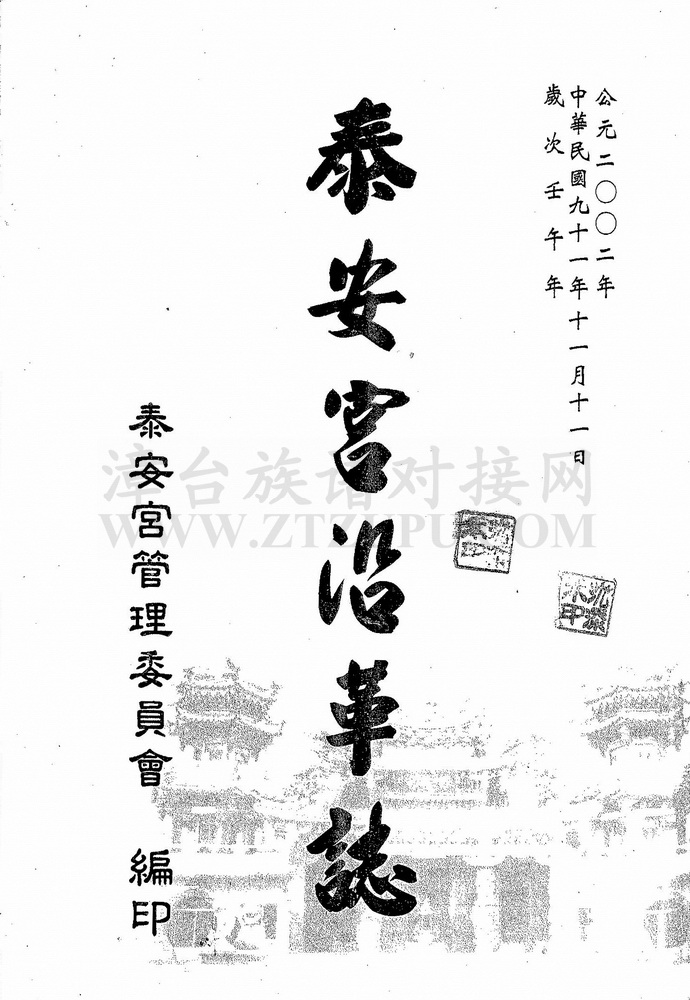 公元二〇〇二年
中華民國九十一年十一月十一日
歲次壬午年
泰安宮沿革誌
泰安宮管理委員會 編印
漳台族谱对接网
WWW.ZTZUPU.COM